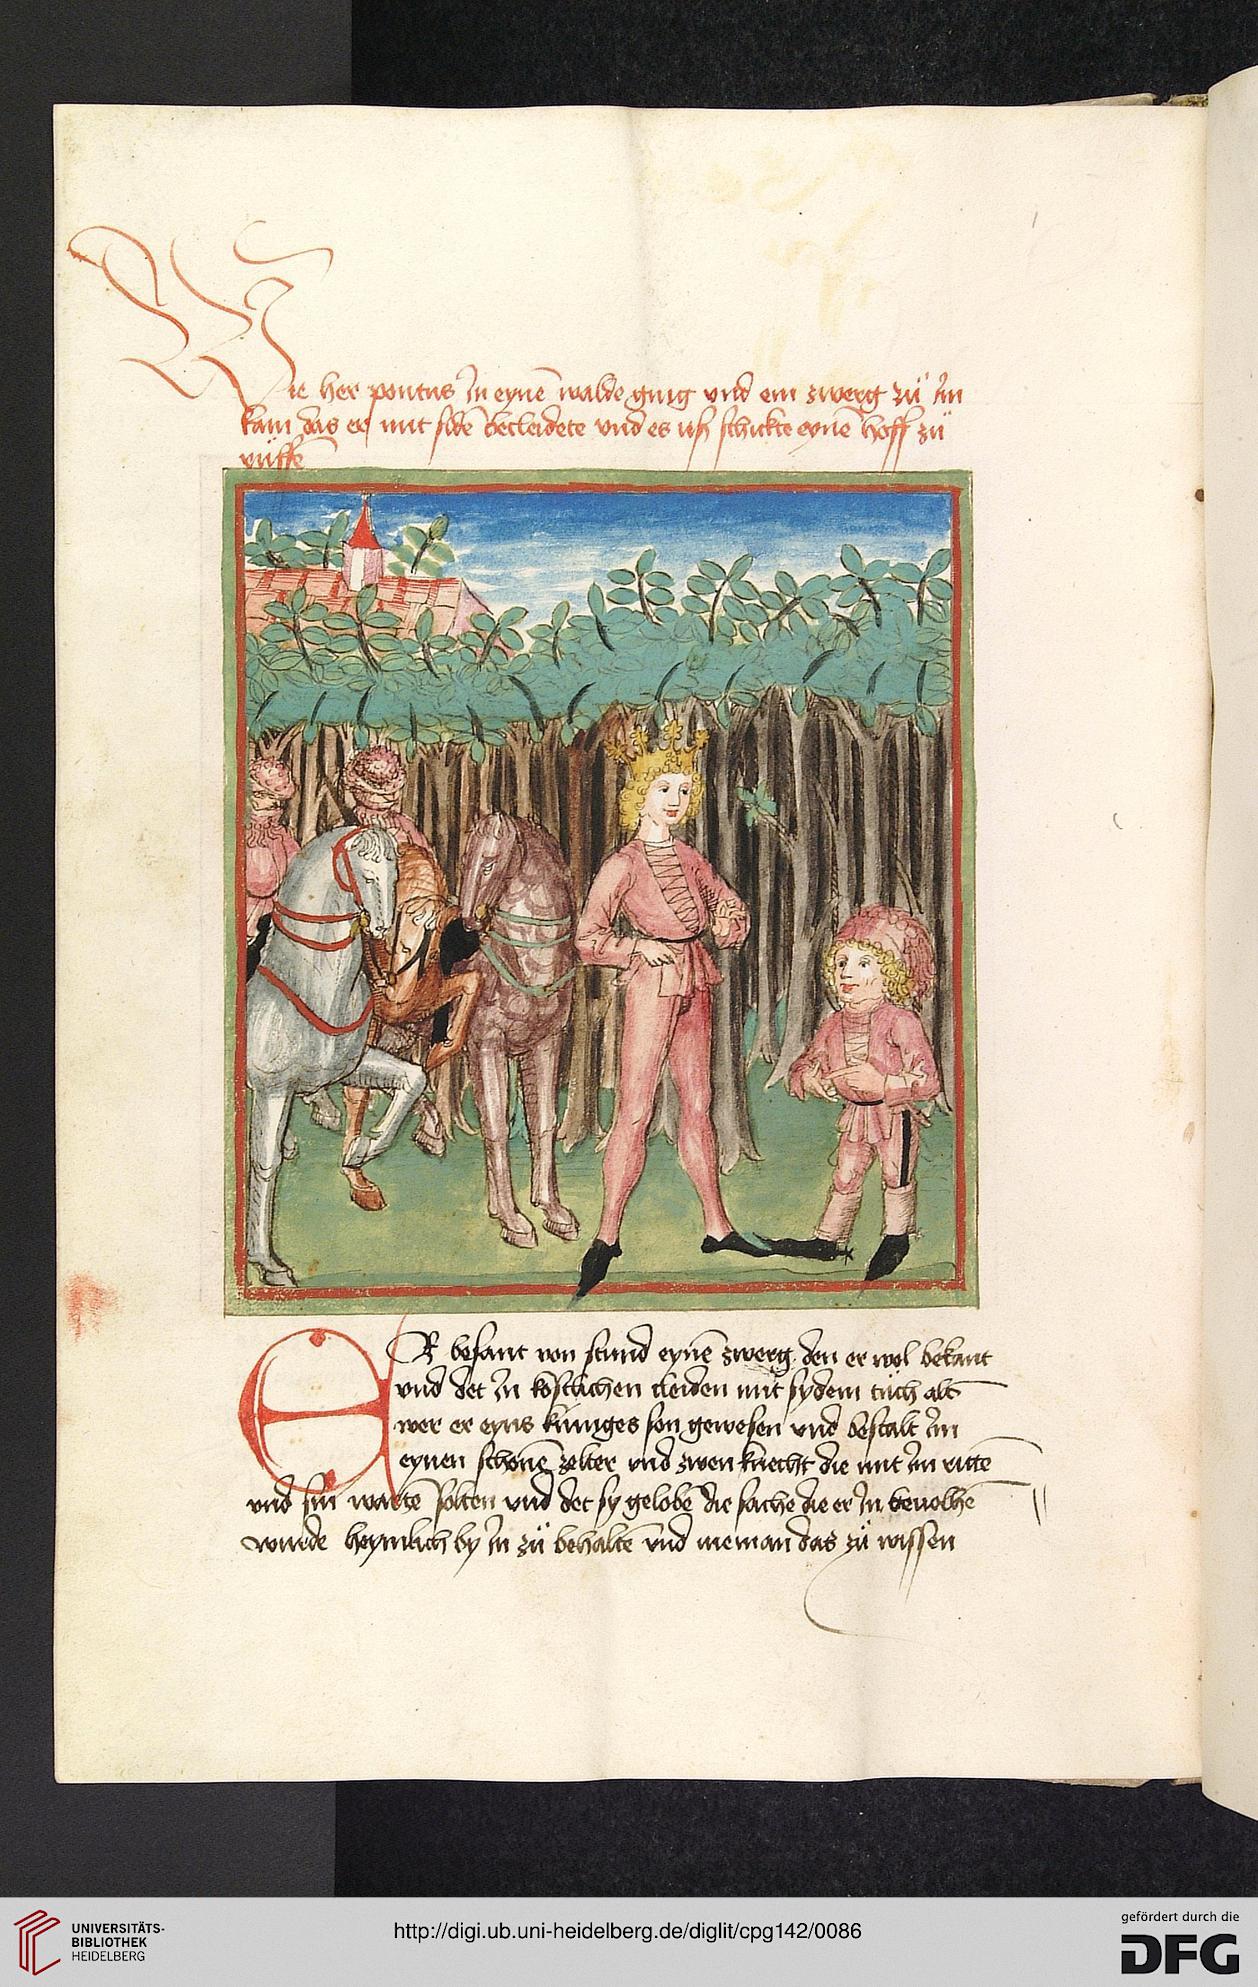 Wie her pontus Jn eynē walde ging vnd ein zwerg zů Jm
kam das er mit sidē becleidete vnd es uß schickte eynē hoff zů
rüffē
ER besant von stund eynē zwerg den er wol bekant
vnd det Jn kostlichen cleiden mit sydem tüch alß
wer er eyns küniges son gewesen vnd bestalt Jm
eynen schonē zelter vnd zwen knecht die mit Jm rittē
vnd sin wartē solten vnd det sy gelobē die sache die er Jn beuolhē
wurde heymlich by Jn zů behaltē vnd nieman das zů wissen
UNIVERSITÄTS-
BIBLIOTHEK
HEIDELBERG
http://digi.ub.uni-heidelberg.de/diglit/cpg142/0086
gefördert durch die
DFG